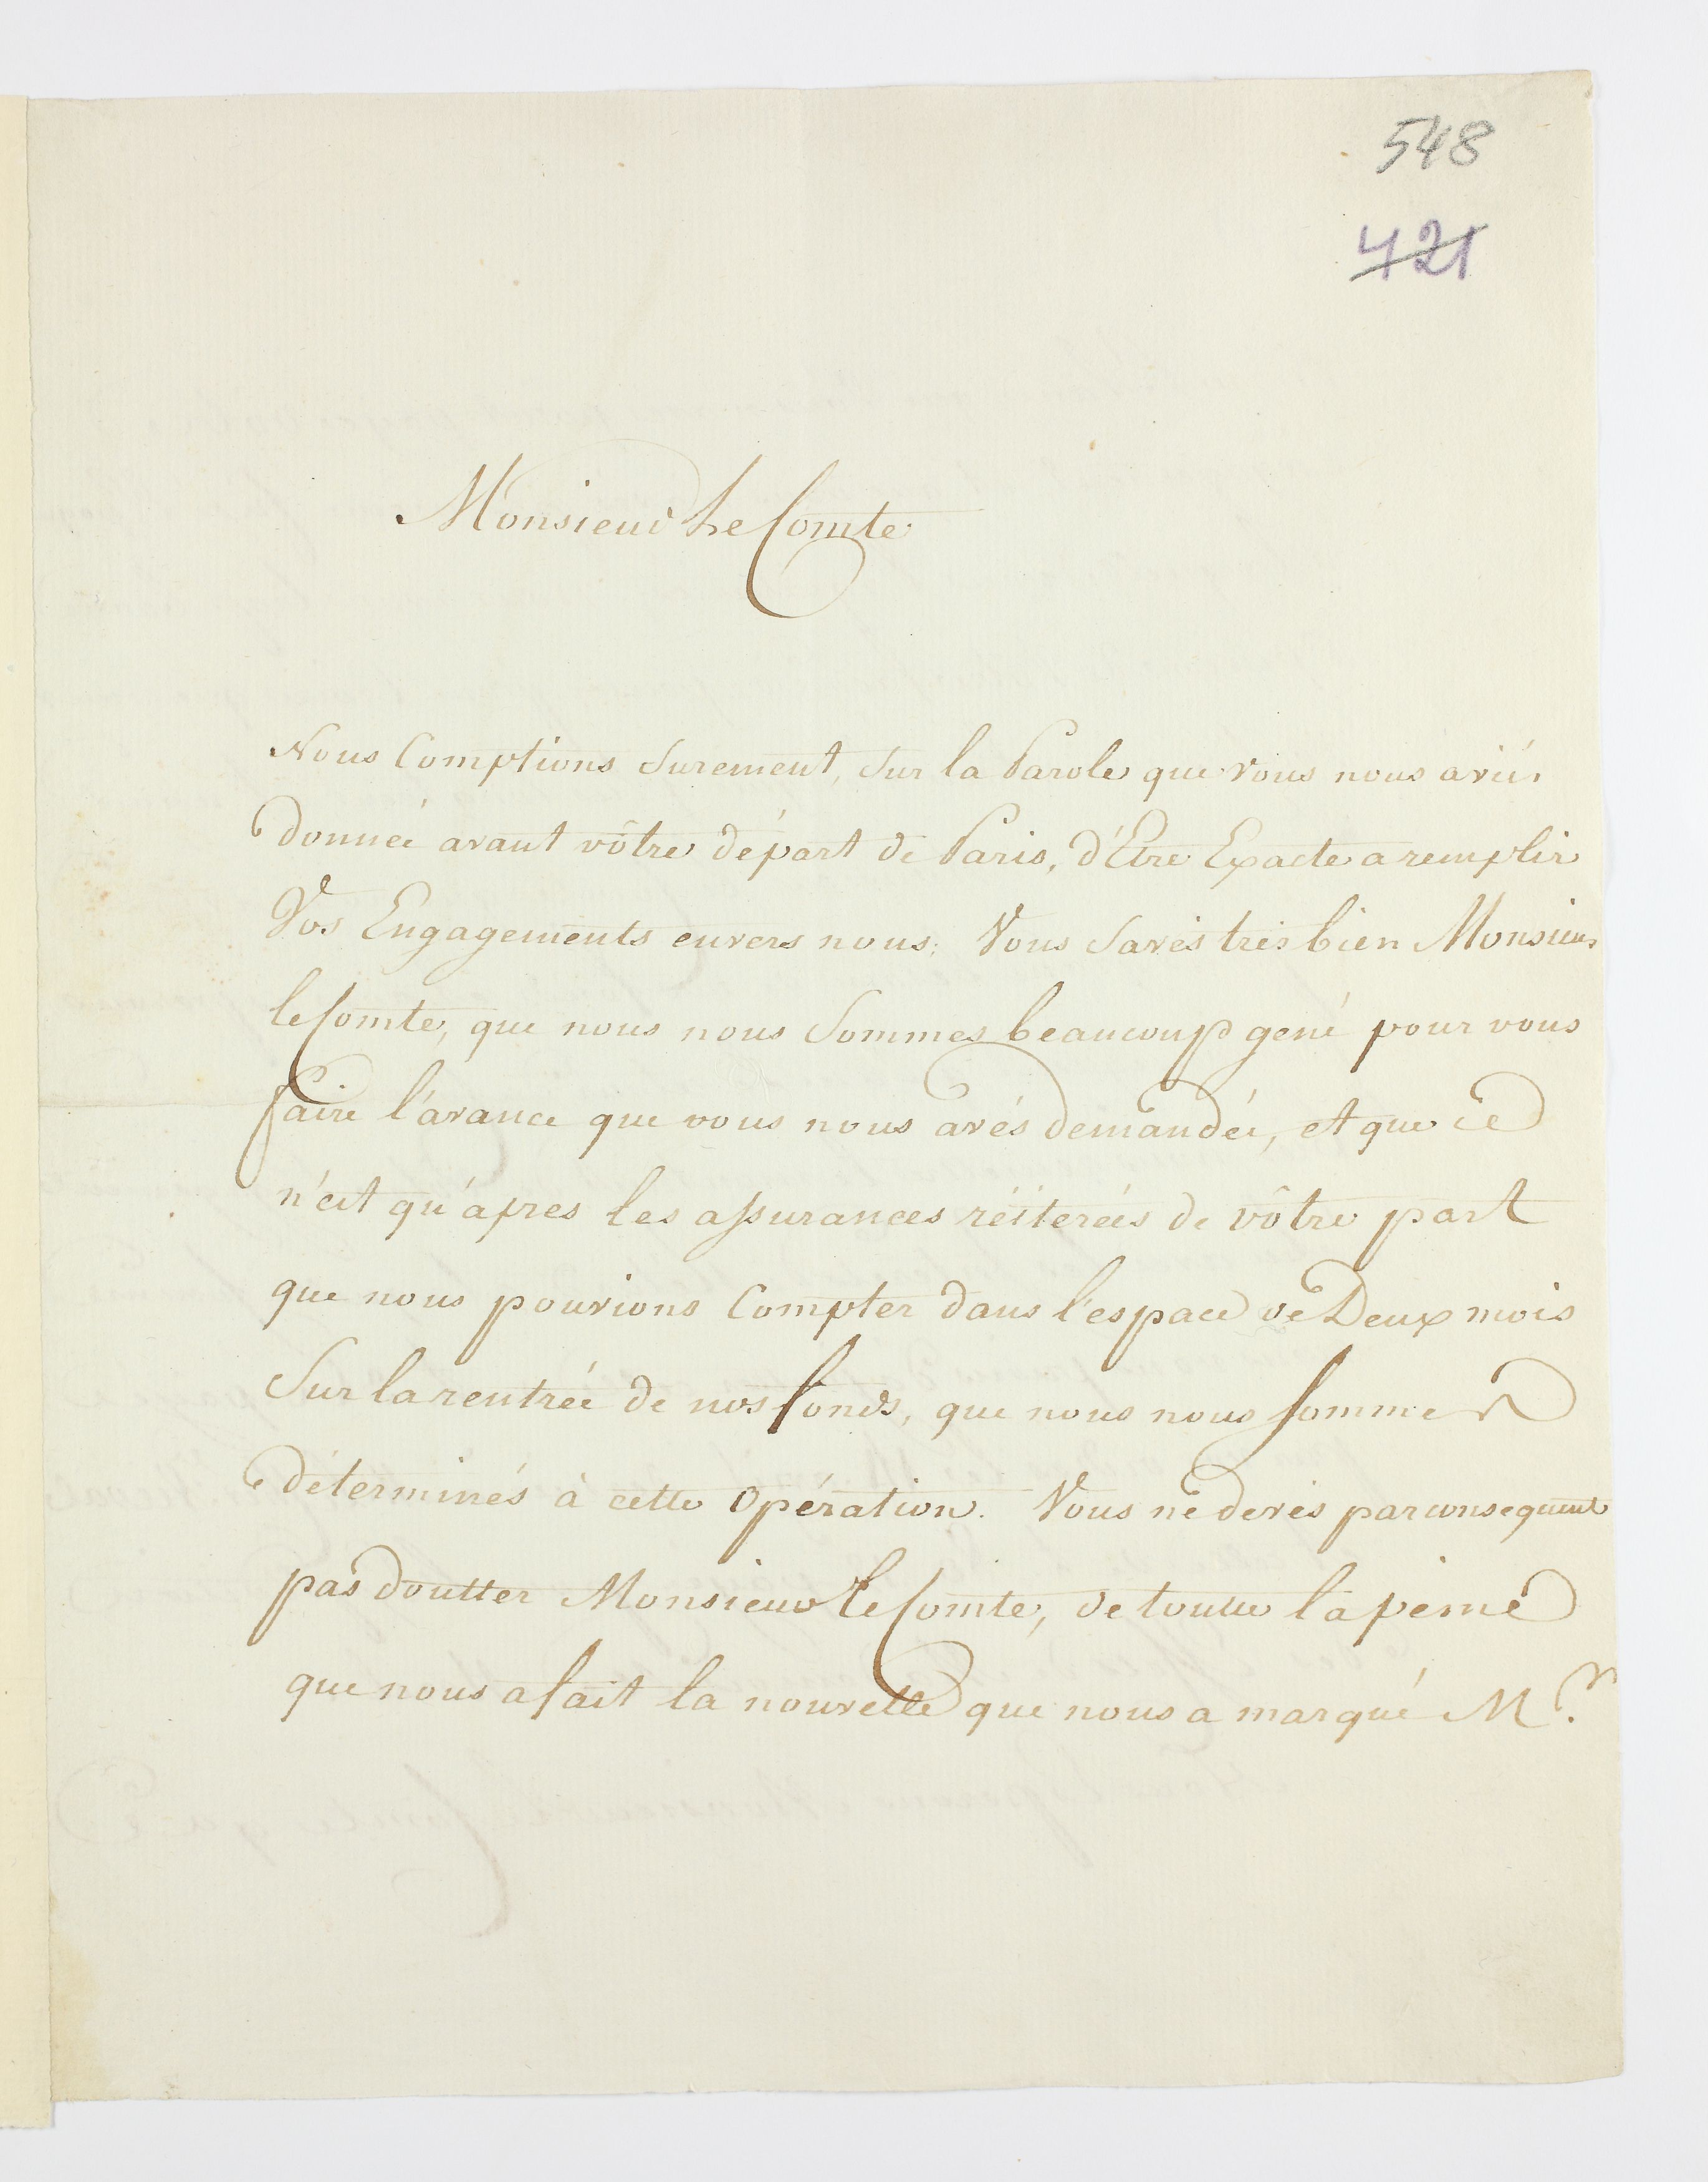 548
421
Monsieur Le Comte
Nous Comptions Surement, Sur la Parole que vous nous aviés
donneé avant vôtre départ de Paris, d'Etre Exacte a remplir
Vos Engagements envers nous; Vous Savés trés bien Monsieur
le Comte, que nous nous Sommes beaucoup gené pour vous
faire l'avance que vous nous avés demandeé, et que ce
n'est qu'apres les assurances réïtereés de vôtre part
que nous pouvions Compter dans l'espace de Deux mois
Sur la rentreé de nos fonds, que nous nous sommes
déterminés à cette Opération. Vous ne devés par consequent
pas doutter Monsieur le Comte, de toutte la peine
que nous a fait la nouvelle que nous a marqué Mr.